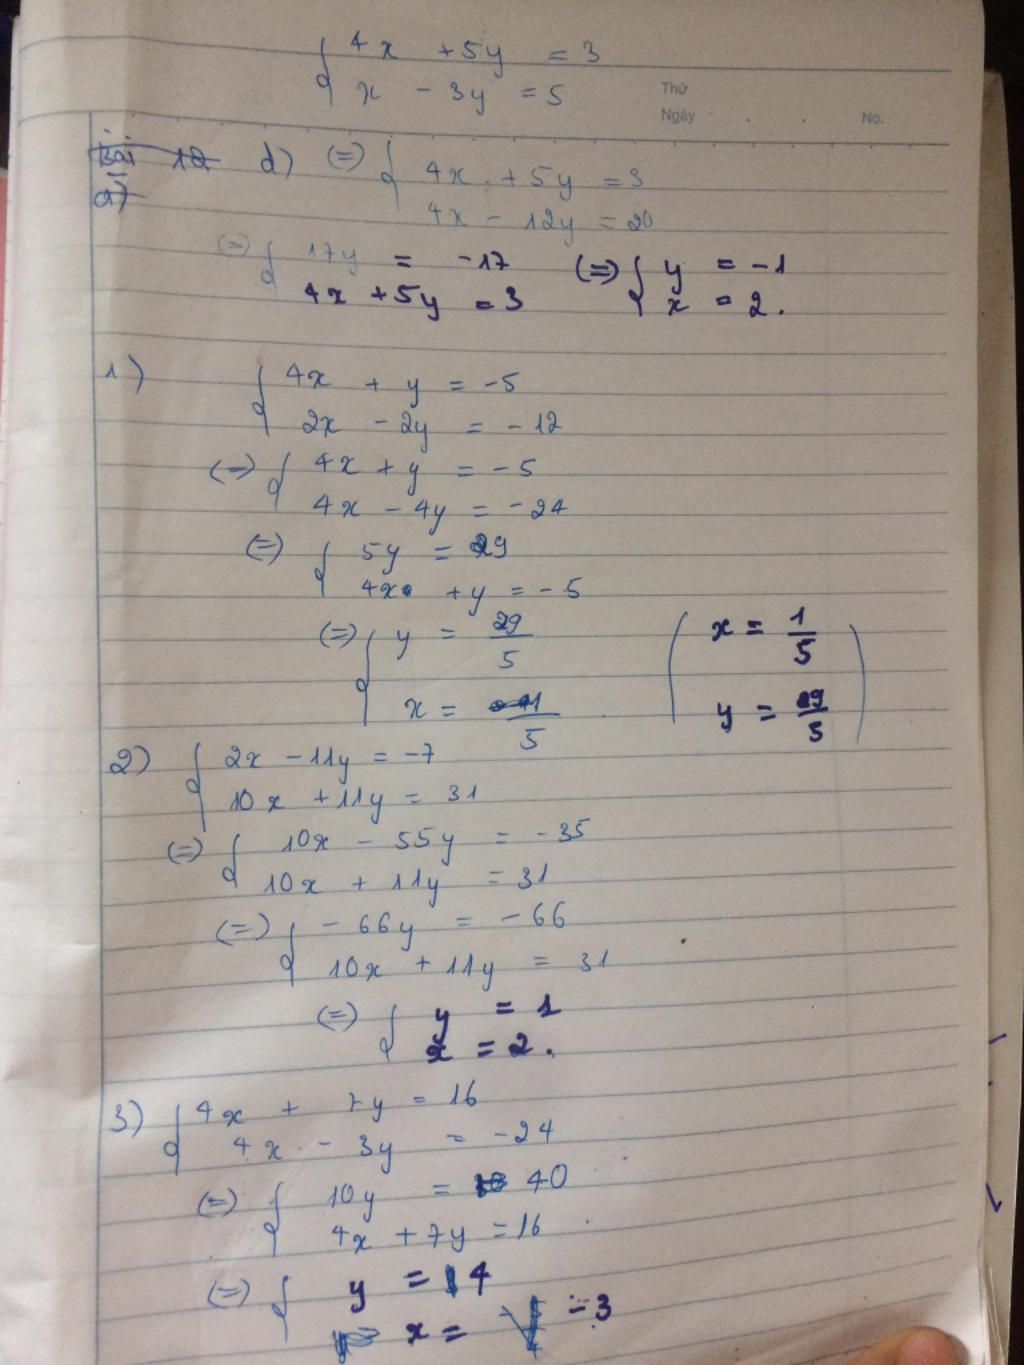 4x + 5y = 3
x - 3y = 5
Thứ
Ngày
No.
Bài 12 d) (=) 4x + 5y = 3
a)
4x - 12y = 20
(=) 17y = -17 (=) y = -1
4x + 5y = 3 x = 2.
1) 4x + y = -5
2x - 2y = -12
(=) 4x + y = -5
4x - 4y = -24
(=) 5y = 29
4x + y = -5
(=) y = 29/5 ( x = 1/5
x = /5 y = 29/5 )
2) 2x - 11y = -7
10x + 11y = 31
(=) 10x - 55y = -35
10x + 11y = 31
(=) -66y = -66
10x + 11y = 31
(=) y = 1
x = 2.
3) 4x + 7y = 16
4x - 3y = -24
(=) 10y = 40
4x + 7y = 16
(=) y = 4
x = -3